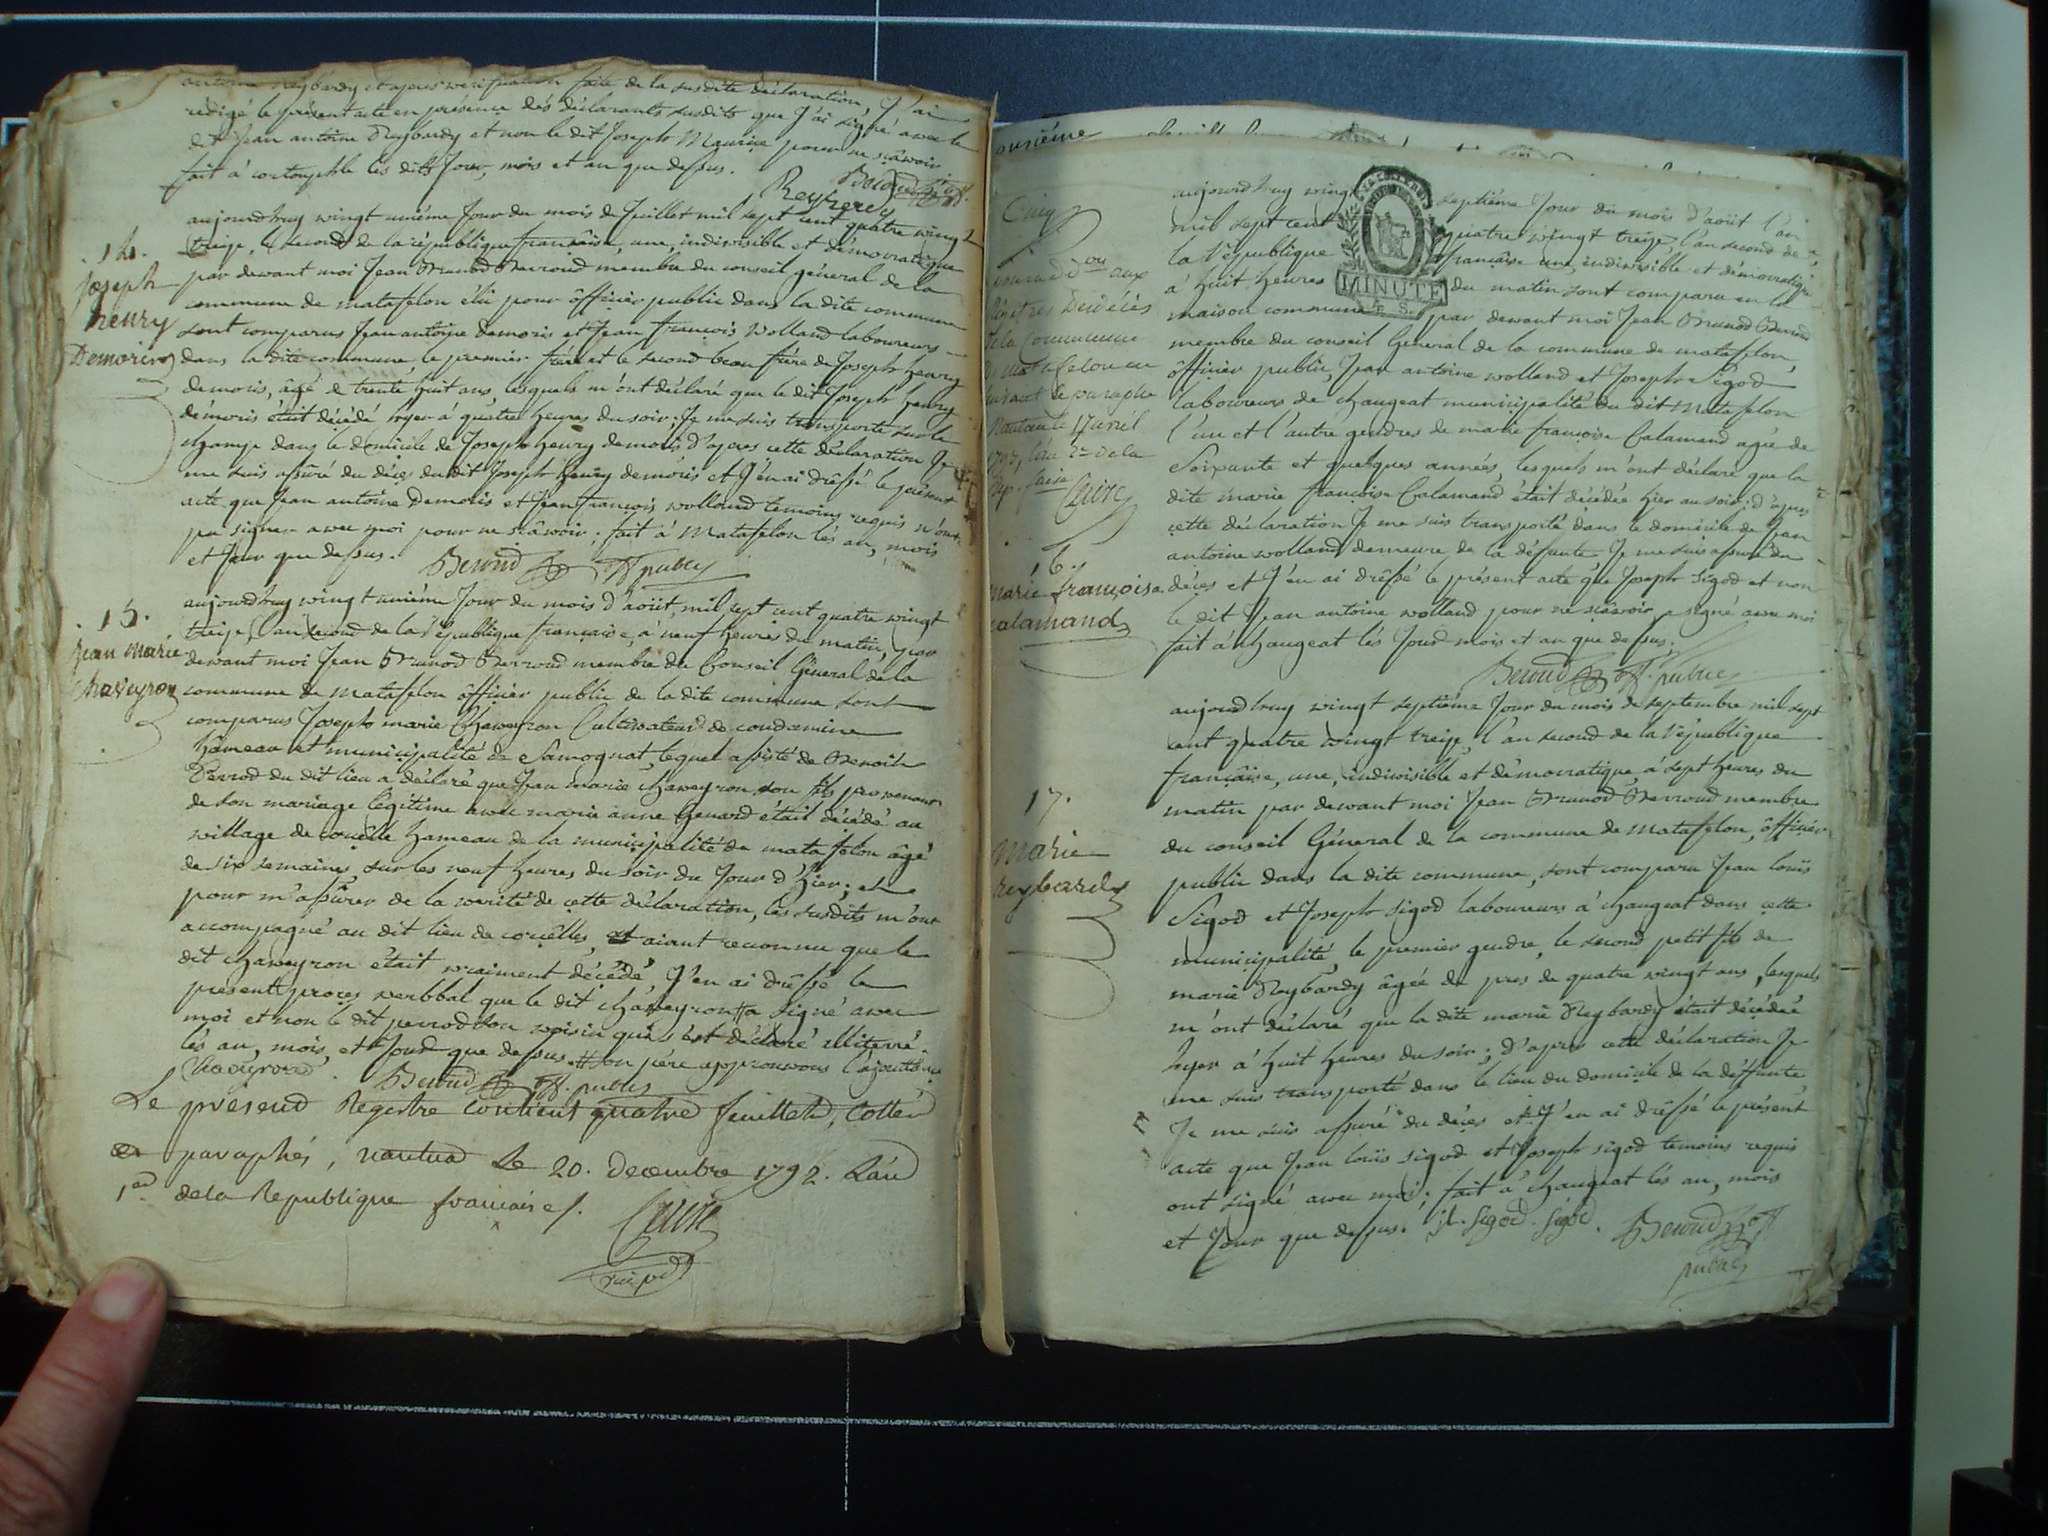 antoine Reybardy et apres verification faite de la susdite déclaration, J'ai
rédigé le présent acte en présence des déclarants susdits que J'ai signé avec le
dit Jean antoine Reybardy et non le dit Joseph Maurice pour ne sçavoir
fait à les dits Jour, mois et an que dessus.
Reyberdy
aujourdhuy wingt unième Jour du mois de Juillet mil sept cent quatre wingt
treize, le second de la république française, une, indivisible et démocratique
par dewant moi Jean Berroud membre du conseil général de la
commune de matafelon élu pour ôfficier public dans la dite commune
sont comparus Jean antoine Demoris et Jean françois Wolland laboureurs
dans la dite commune le premier frere et le second beau frere de Joseph henry
demoris, âgé de trente huit ans, lesquels m'ont déclaré que le dit Joseph henry
démoris était décédé hyer à quatre heures du soir; Je me suis transporté sur le
champ dans le domicile de Joseph henry demoris d'apres cette déclaration Je
me suis assûré du décès du dit Joseph henry demoris et J'en ai drêssé le présent
acte que Jean antoine Demoris et Jean françois wolland temoins requis n'ont
pu signer avec moi pour ne sçâwoir; fait à Matafelon lés an, mois
et Jour que dessus.
Beroud off publiq
14.
Joseph
henry
Demoris
aujourdhuy wingt unième Jour du mois d'août mil sept cent quatre wingt
treize, l'an second de la république française, à neuf heures du matin, par
dewant moi Jean Berroud membre du Conseil Général de la
commune de Matafelon ôfficier public de la dite commune sont
comparus Joseph marie Chaweyron Cultivateur de condamine
hameau et municipalité de Samognat, lequel assisté de Benoit
Perrod du dit lieu a déclaré que Jean marie chaweyron son fils provenant
de son mariage légitime avec marie anne était décédé au
willage de hameau de la municipalité de matafelon âgé
de six semaines sur les neuf heures du soir du Jour d'hier; et
pour m'assûrer de la werité de cette déclaration, les susdits m'ont
accompagné au dit lieu de et aiant reconnu que le
dit chaweyron était wraiment décédé J'en ai drêssé le
présent procès werbbal que le dit chaweyron # a signé avec
moi et non le dit perrod son woisin qui s'est déclaré illiterré
lés an, mois, et Jour que dessus # son père approuwons l'ajouté
Chaveyron Beroud off. publiq
15.
Jean marie
chaveyron
Le présend Registre Contient quatre feuilletd, Cottés
et paraphés, nantua Le 20. decembre 1792. L'an
1er de la Republique francaise.
Cinq
aux
de la Commune
de matafelon
suivant le paraphe
1793, l'an 2e de la
Rep. f
aujourdhuy wingt septième Jour du mois d'août l'an
mil sept cent quatre wingt treize, l'an second de
la république française une, indivisible et démocratique
MINUTE
à huit heures du matin sont comparu en la
maison commune par dewant moi Jean Berroud
membre du conseil General de la commune de matafelon,
ôfficier public, Jean antoine wolland et Joseph Sigod
laboureurs de changeat municipalité du dit Matafelon
l'un et l'autre gendres de marie françoise Calamand agée de
Soixante et quelques années, lesquels m'ont déclaré que la
dite marie françoise Calamand était décédée hier au soir; d'après
cette déclaration Je me suis transporté dans le domicile de Jean
antoine wolland demeure de la déffunte Je me suis assuré du
décès et J'en ai drêssé le présent acte que Joseph Sigod et non
le dit Jean antoine wolland pour ne sçâwoir a signé avec moi
fait à changeat lés Jour mois et an que dessus;
Beroud off. publiq
16.
Marie françoise
calamand
aujourdhuy wingt septième Jour du mois de septembre mil sept
cent quatre wingt treize, l'an second de la république
française, une, indiwisible et démocratique, à sept heures du
matin par dewant moi Jean Berroud membre
du conseil Général de la commune de Matafelon, ôfficier
public dans la dite commune, sont comparu Jean louïs
Sigod et Joseph sigod laboureurs à changeat dans cette
municipalité, le premier gendre, le second petit fils de
marie Reybardy âgée de pres de quatre wingt ans, lesquels
m'ont déclaré que la dite marie Reybardy était décédée
hyer à huit heures du soir; d'après cette déclaration Je
me suis transporté dans le lieu du domicile de la déffunte
Je me suis assuré du décès et J'en ai drêssé le présent
acte que Jean louïs sigod et Joseph sigod temoins requis
ont signé avec moi; fait à changeat lés an, mois
et Jour que dessus. jl. Sigod. Sigod. Beroud off
publiq
17.
Marie
reybardy